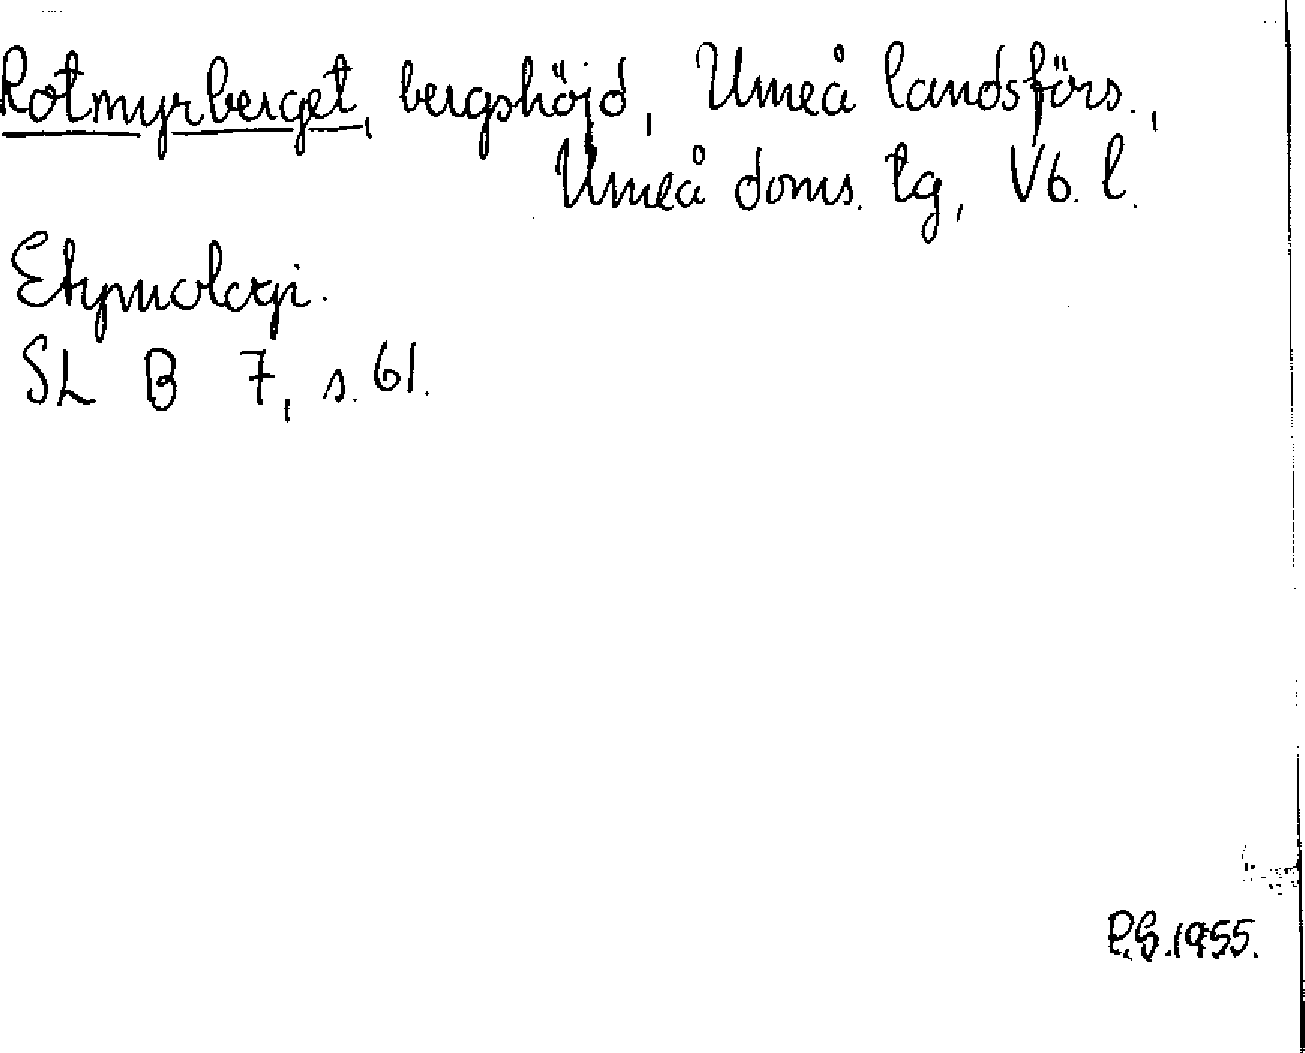 Rotmyrberget, bergshöjd, Umeå landsförs.,
Umeå doms. tg, Vb. l.
Etymologi.
SL B 7, s. 61.
P.S. 1955.